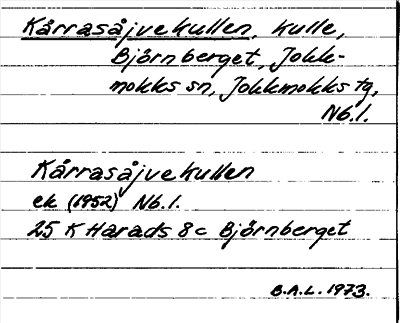 Kårrasåjvekullen, kulle,
Björnberget, Jokk-
mokks sn, Jokkmokks tg,
Nb.l.
Kårrasåjvekullen
ek (1952) Nb.l.
25 K Harads 8c Björnberget
B.A.L. 1973.